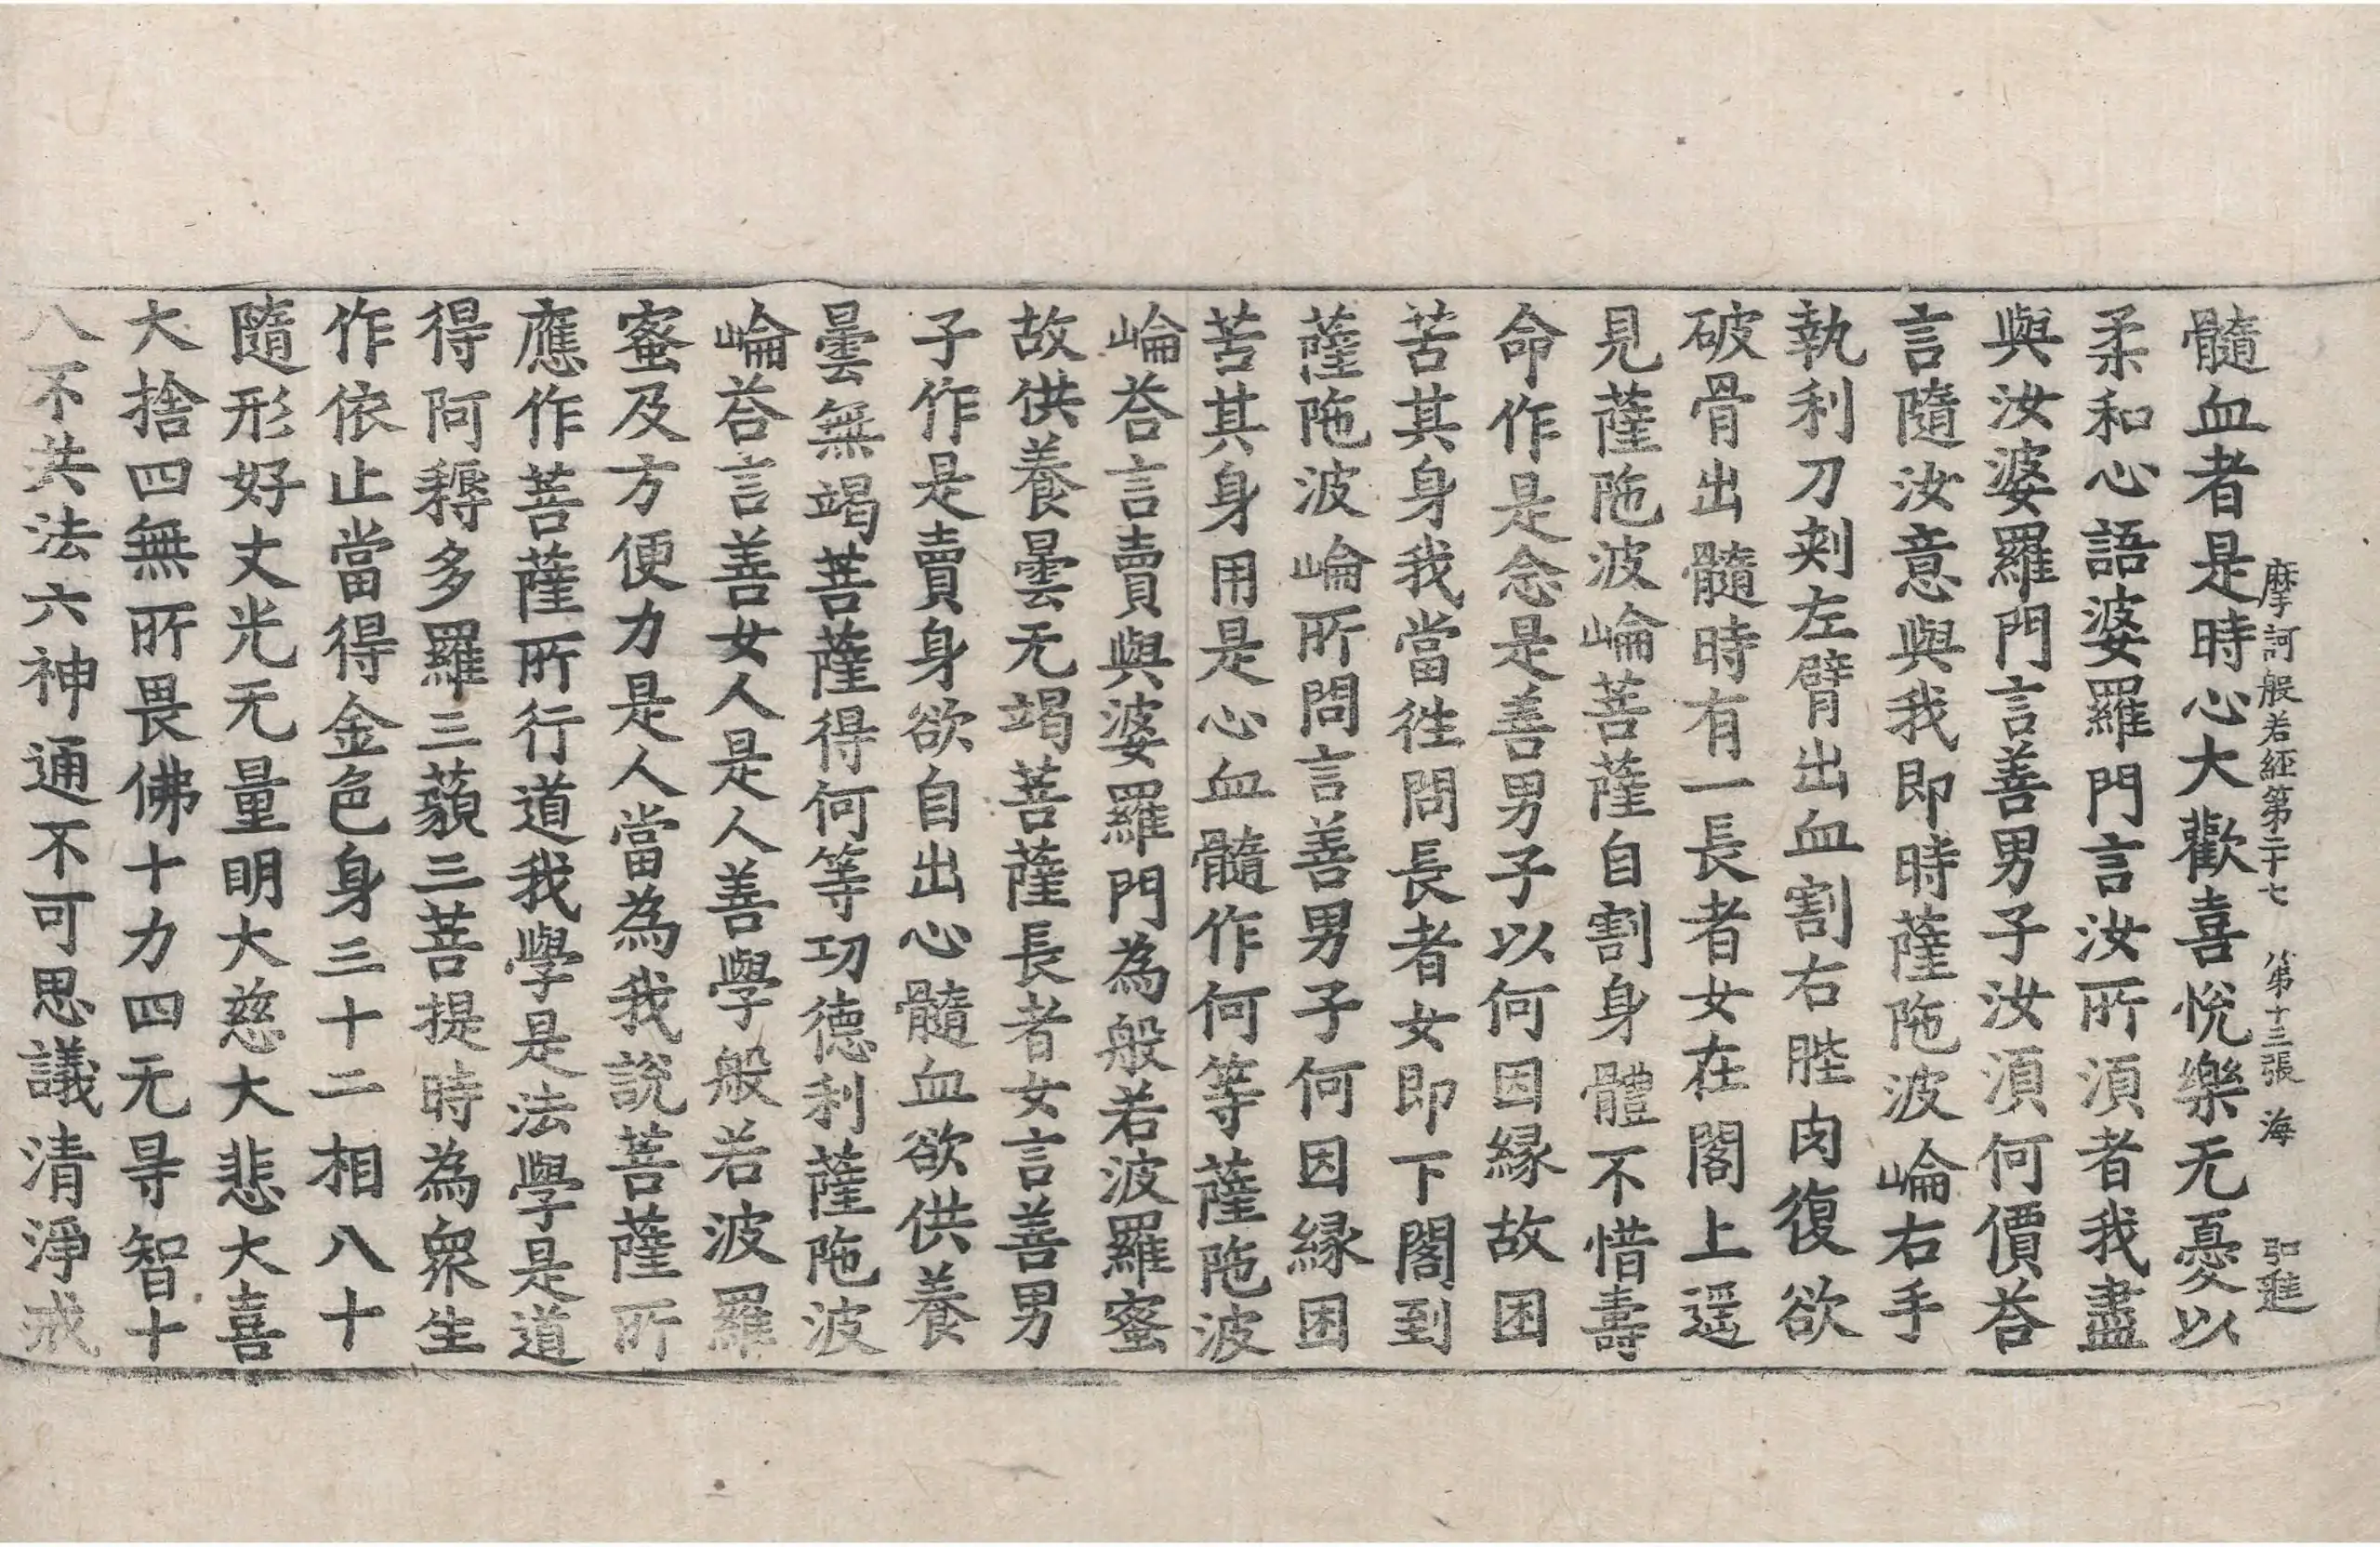 摩訶般若經第二十七 第十三張 海 弘進
髓血者是時心大歡喜悅樂无憂以
柔和心語婆羅門言汝所須者我盡
與汝婆羅門言善男子汝須何價荅
言隨汝意與我即時薩陁波崘右手
執利刀刺左臂出血割右髀肉復欲
破骨出髓時有一長者女在閣上遥
見薩陁波崘菩薩自割身體不惜壽
命作是念是善男子以何因縁故困
苦其身我當徃問長者女即下閣到
薩陁波崘所問言善男子何因縁困
苦其身用是心血髓作何等薩陁波
崘荅言賣與婆羅門為般若波羅蜜
故供養曇无竭菩薩長者女言善男
子作是賣身欲自出心髓血欲供養
曇無竭菩薩得何等功德利薩陁波
崘荅言善女人是人善學般若波羅
蜜及方便力是人當為我說菩薩所
應作菩薩所行道我學是法學是道
得阿耨多羅三藐三菩提時為衆生
作依止當得金色身三十二相八十
隨形好丈光无量明大慈大悲大喜
大捨四無所畏佛十力四无㝵智十
八不共法六神通不可思議清淨戒